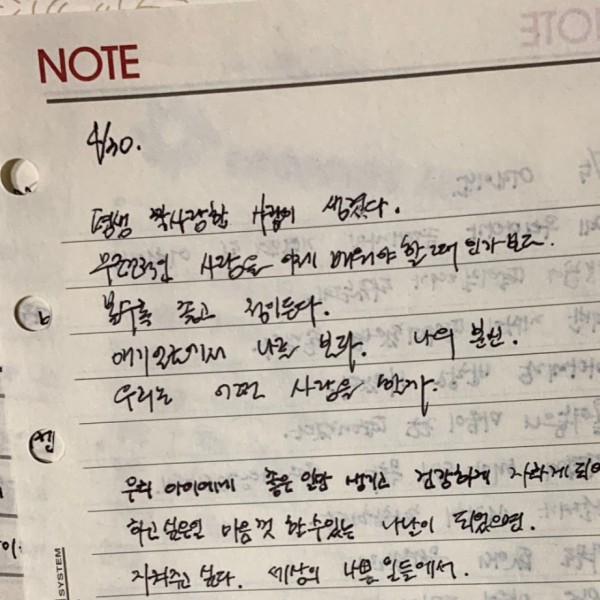 NOTE
4/30.
평생 짝사랑할 사람이 생겼다.
무조건적인 사랑을 이제 배워야 할 때 인가보다.
볼수록 좋고 정이든다.
애기 눈에서 나를 보다. 나의 분신.
우리는 어떤 사랑을 할까.
우리 아이에게 좋은 일만 생기고 건강하게 자라게 되어
하고싶은일 마음껏 할수있는 나날이 되었으면.
지켜주고 싶다. 세상의 나쁜 일들에서.
SYSTEM